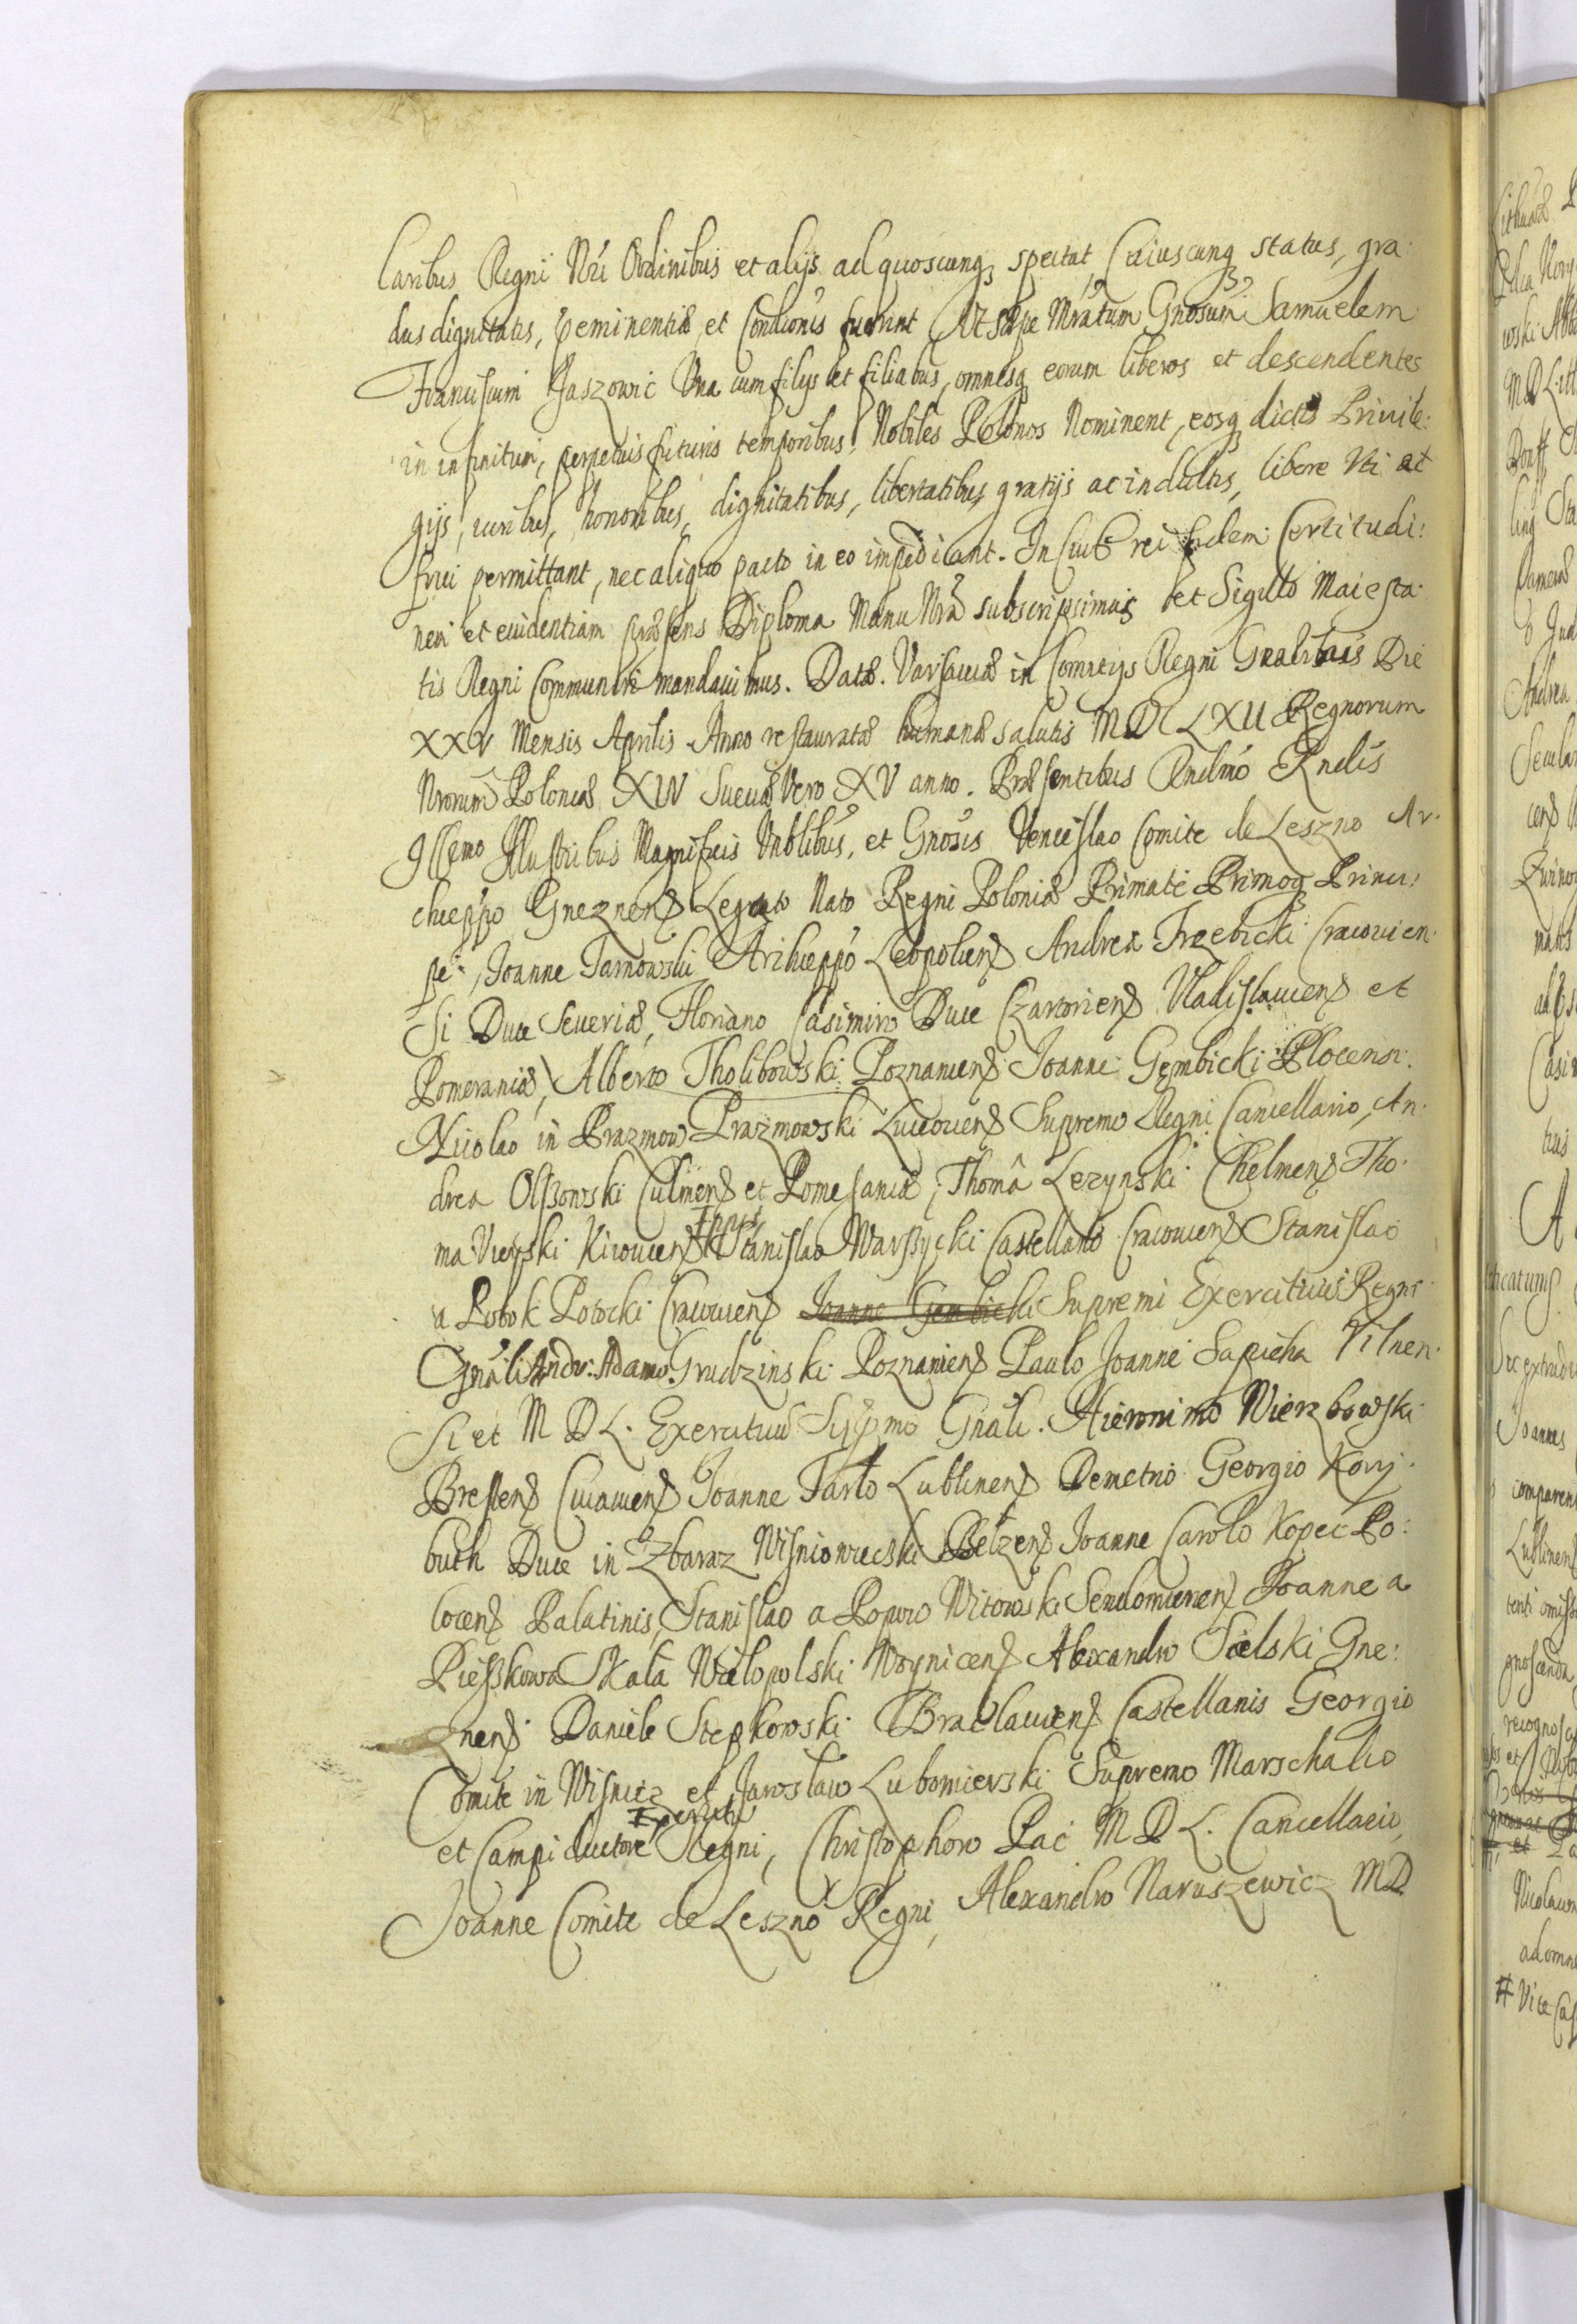 laribus Regni Nri Ordinibus et alijs ad quoscunq spectat, Cuiuscunq status, gra:
dus dignitatis, peminentiæ, et Condionis fuerint Ut sæpe Mratum Gnosum Samuelem
Franciscum Jaszowic Una cum filijs et filiabus, omnesq eorum liberos et descendentes
in infinitum, perpetuis futuris temporibus, Nobiles Polonos Nominent, eosq dictis Priuile:
gijs, iuribus, honoribus, dignitatibus, libertatibus, gratijs ac indultis, libere Uti at
frui permittant, nec aliquo pacto in eo impediant. In Cuius rei fidem Certitudi:
nem et euidentiam præsens Diploma Manu Nra subscripsimus et Sigillo Maiesta:
tis Regni Communiri mandauimus. Datæ. Varsauiæ in Comitijs Regni Gnalibus Die
XXV Mensis Aprilis Anno restauratæ humanæ salutis MDCLXII Regnorum
Nrorum Poloniæ XIV Sueciæ Vero XV anno. Præsentibus Rndmo Rndis
Illmo Illustribus Magnificis Unblibus, et Gnosis Venceslao Comite de Leszno Ar:
chieppo Gneznens Legato Nato Regni Poloniæ Primate Primoq Princi:
pe, Joanne Tarnowski Archieppo Leopoliens Andrea Trzebicki Cracouien:
si Duce Seueriæ, Floriano Casimiro Duce Czartoriens Vladislauiens et
Pomeraniæ, Alberto Tholibowski Poznaniens Joanne Gembicki Plocensi:
Nicolao in Prazmow Prazmowski Luceoriens Supremo Regni Cancellario, An:
drea Olszowski Culmens et Pomesaniæ, Thomâ Lezynski Chelmens Tho:
ma Vieyski Kiiouiens Eppis Stanislao Warszycki Castellano Cracouiens Stanislao
a Potok Potocki Cracouiens Joanne Gembicki Supremi Exercituus Regni
Gnali Andr: Adamo Grudzinski Poznaniens Paulo Joanne Sapieha Vilnen:
si et M D L. Exercituus Suppmo Gnali. Hieronimo Wierzbowski
Brestens Cuiauiens Joanne Tarlo Lublinens Demetrio Georgio Kory:
buth Duce in Zbaraz Wisniowiecski Belzens Joanne Carolo Kopec Po:
locens Palatinis, Stanislao a Popow Witowski Sendomiriens Joanne a
Pieskowa Skala Wielopolski Woynicens Alexandro Sielski Gne:
znens Daniele Stepkowski Braclauiens Castellanis Georgio
Comite in Wisnicz et Jaroslaw Lubomierski Supremo Marschalco
et Campiductore Exercitu Regni, Christophoro Pac M D L. Cancellario,
Joanne Comite de Leszno Regni, Alexandro Naruszewicz MD